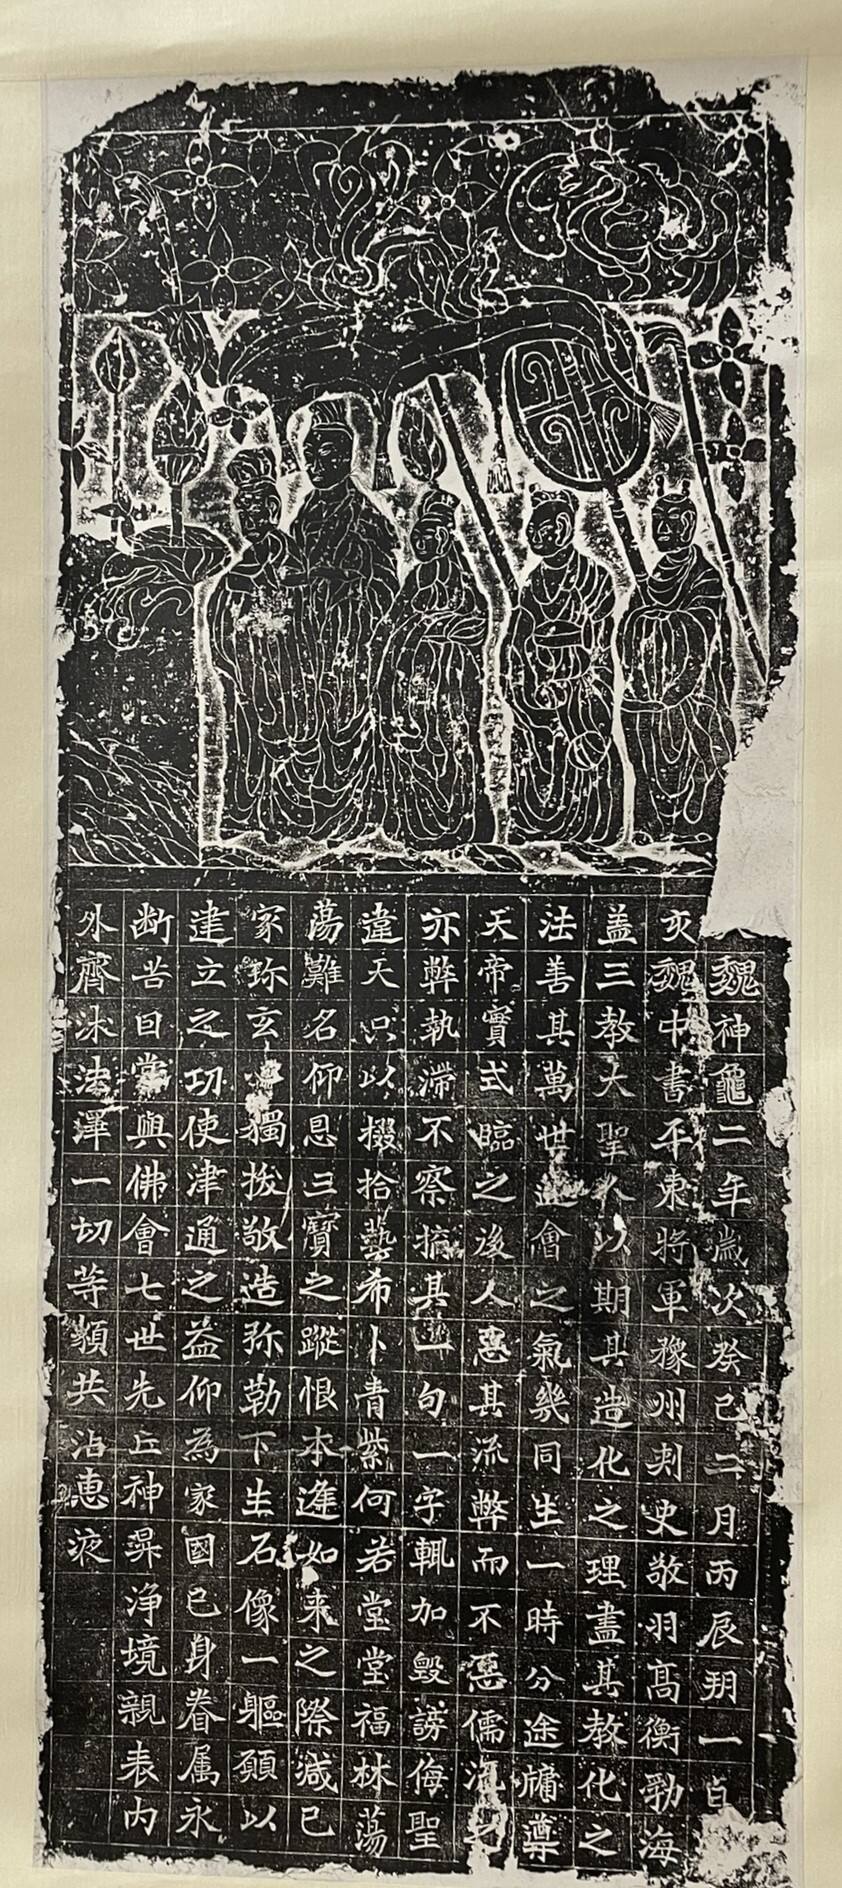 魏神龜二年歲次癸巳二月丙辰朔一日
亥魏中書平東將軍豫州刾史敬羽高衡勃海
盖三教大聖以期其造化之理盡其教化之
法善其萬世會之氣幾同生一時分途牗導
天帝實式臨之後人惡其流弊而不惡儒流之
亦弊執滯不察摭其一句一字輒加毀謗侮聖
違天只以掇拾藝希卜青紫何若堂堂福林蕩
蕩難名仰恩三寶之蹤恨本逢如来之際减已
家珎玄心獨拔敬造弥勒下生石像一軀願以
建立之功使津通之益仰為家國已身眷属永
断苦曰當與佛會七世先丘神昇浄境親表内
外齊沐法澤一切等類共沾恵液